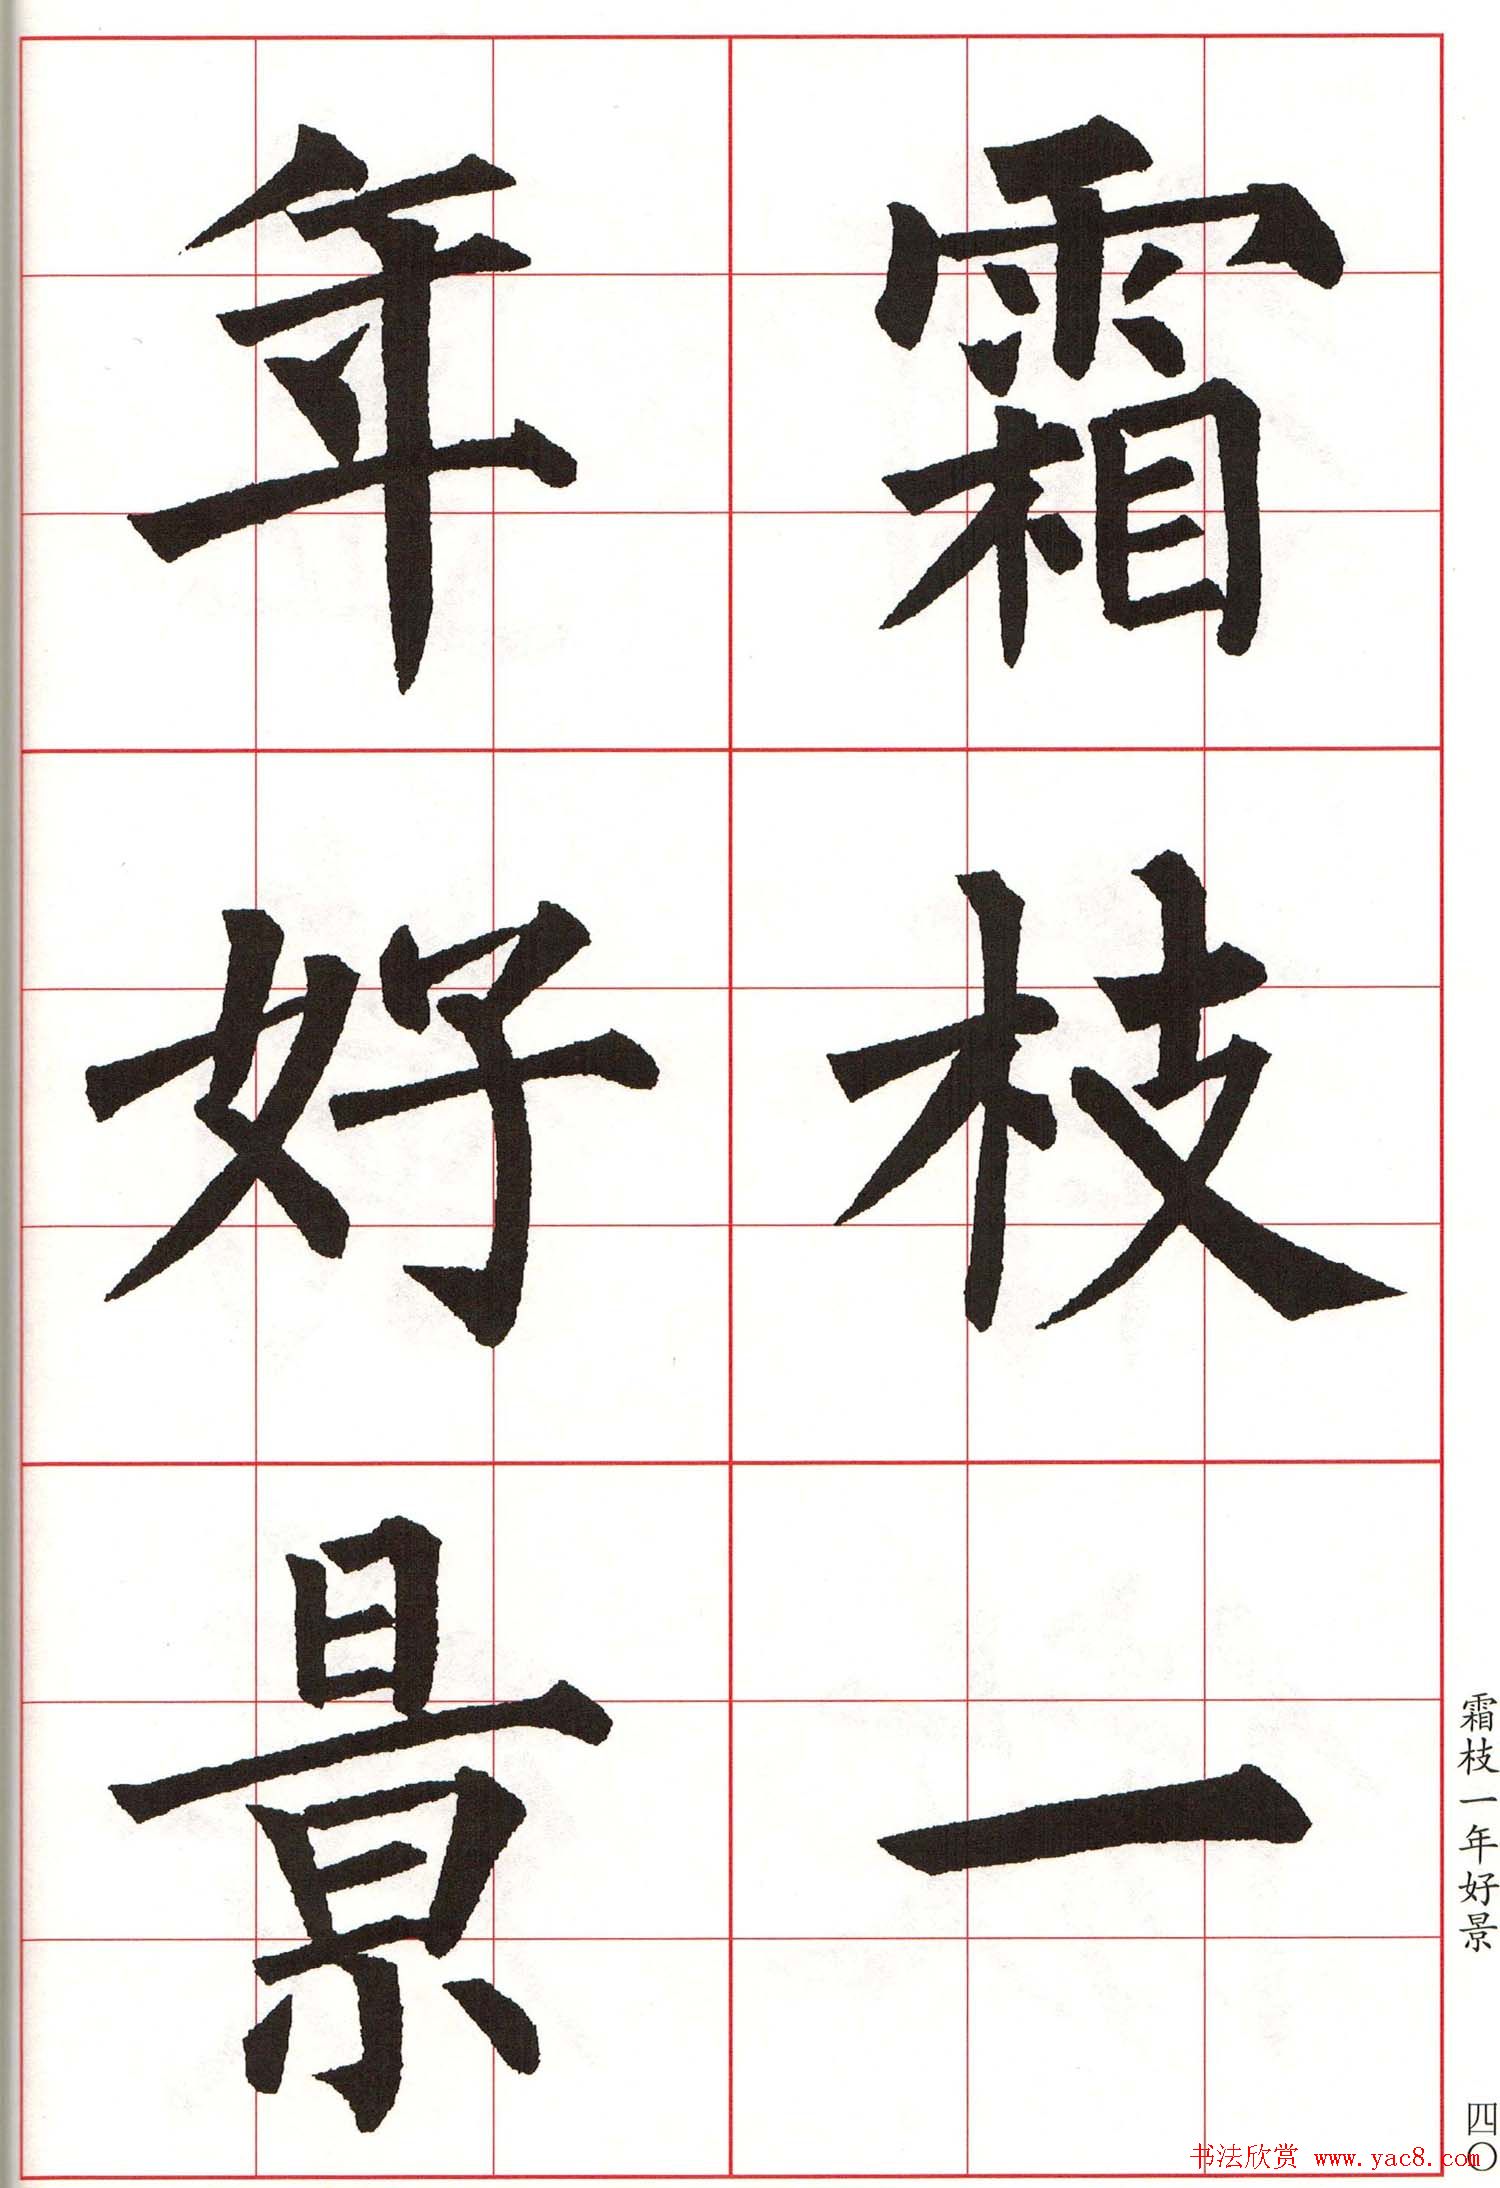 霜枝一
年好景
霜枝一年好景
四〇
书法欣赏 www.yac8.com